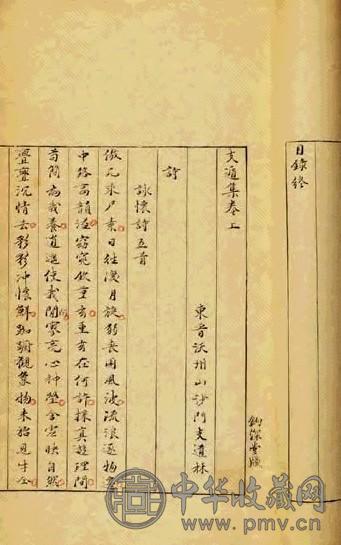 目錄終
支遁集卷上
東晉沃州山沙門支遁林
詩
詠懷詩五首
傲兀乘尸素日往復月旋弱喪困風波流浪逐物遷
中路高韻溢窈窕欽重玄重玄在何許採真遊理間
苟簡為我養逍遙使我閒寥亮心神瑩含虛映自然
亹亹沉情去彩彩沖懷鮮踟躕觀象物未始見牛全
中华收藏网
www.pmv.cn